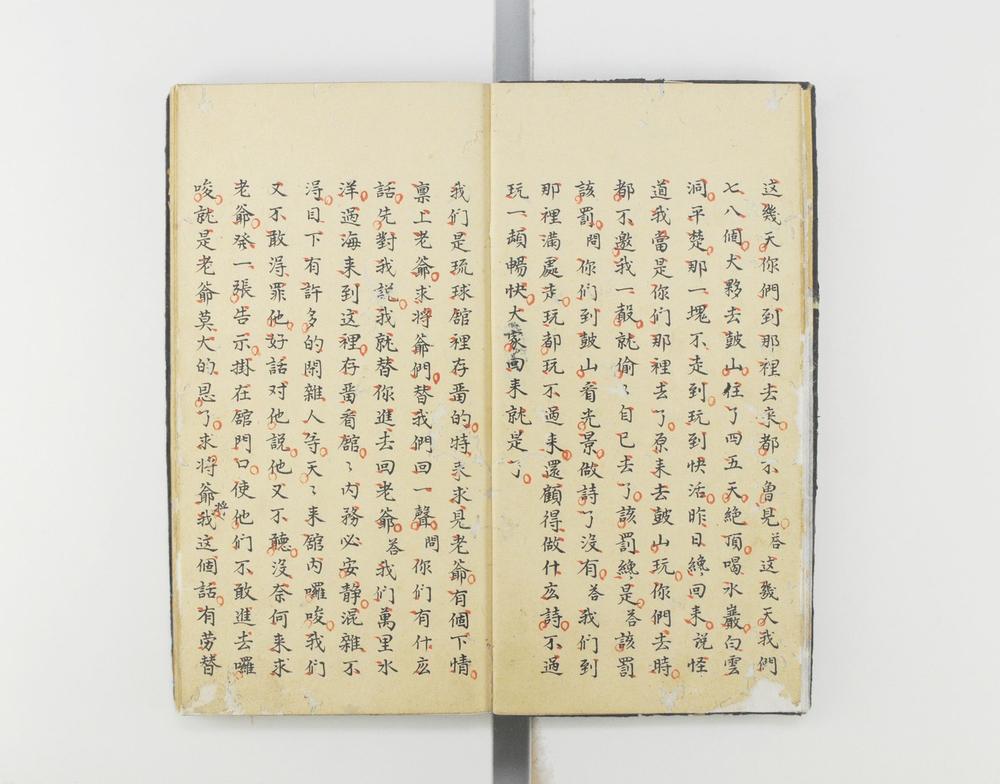 这幾天你們到那裡去来都不曾見答这幾天我們
七八個大夥去鼓山住了四五天絶頂喝水巖白雲
洞平楚那一塊不走到玩到快活昨日纔回来説怪
道我當是你们那裡去了原来去鼓山玩你們去時
都不邀我一殼就偷〻自己去了該罰纔是答該罰
該罰問你们到鼓山看光景做詩了沒有答我们到
那裡滿處走玩都玩不過来還顧得做什庅詩不過
玩一頑暢快大家回来就是了
我们是琉球舘裡存畨的特来求見老爺有個下情
禀上老爺求将爺們替我們回一聲問你们有什庅
話先對我説我就替你進去回老爺答我们萬里水
洋過海来到这裡存畨看舘〻内務必安静混雜不
淂目下有許多的閑雜人等天〻来舘内囉唆我们
又不敢淂罪他好話对他説他又不聽沒奈何来求
老爺發一張告示掛在舘門口使他们不敢進去囉
唆就是老爺莫大的恩了求将爺将我这個話有劳替